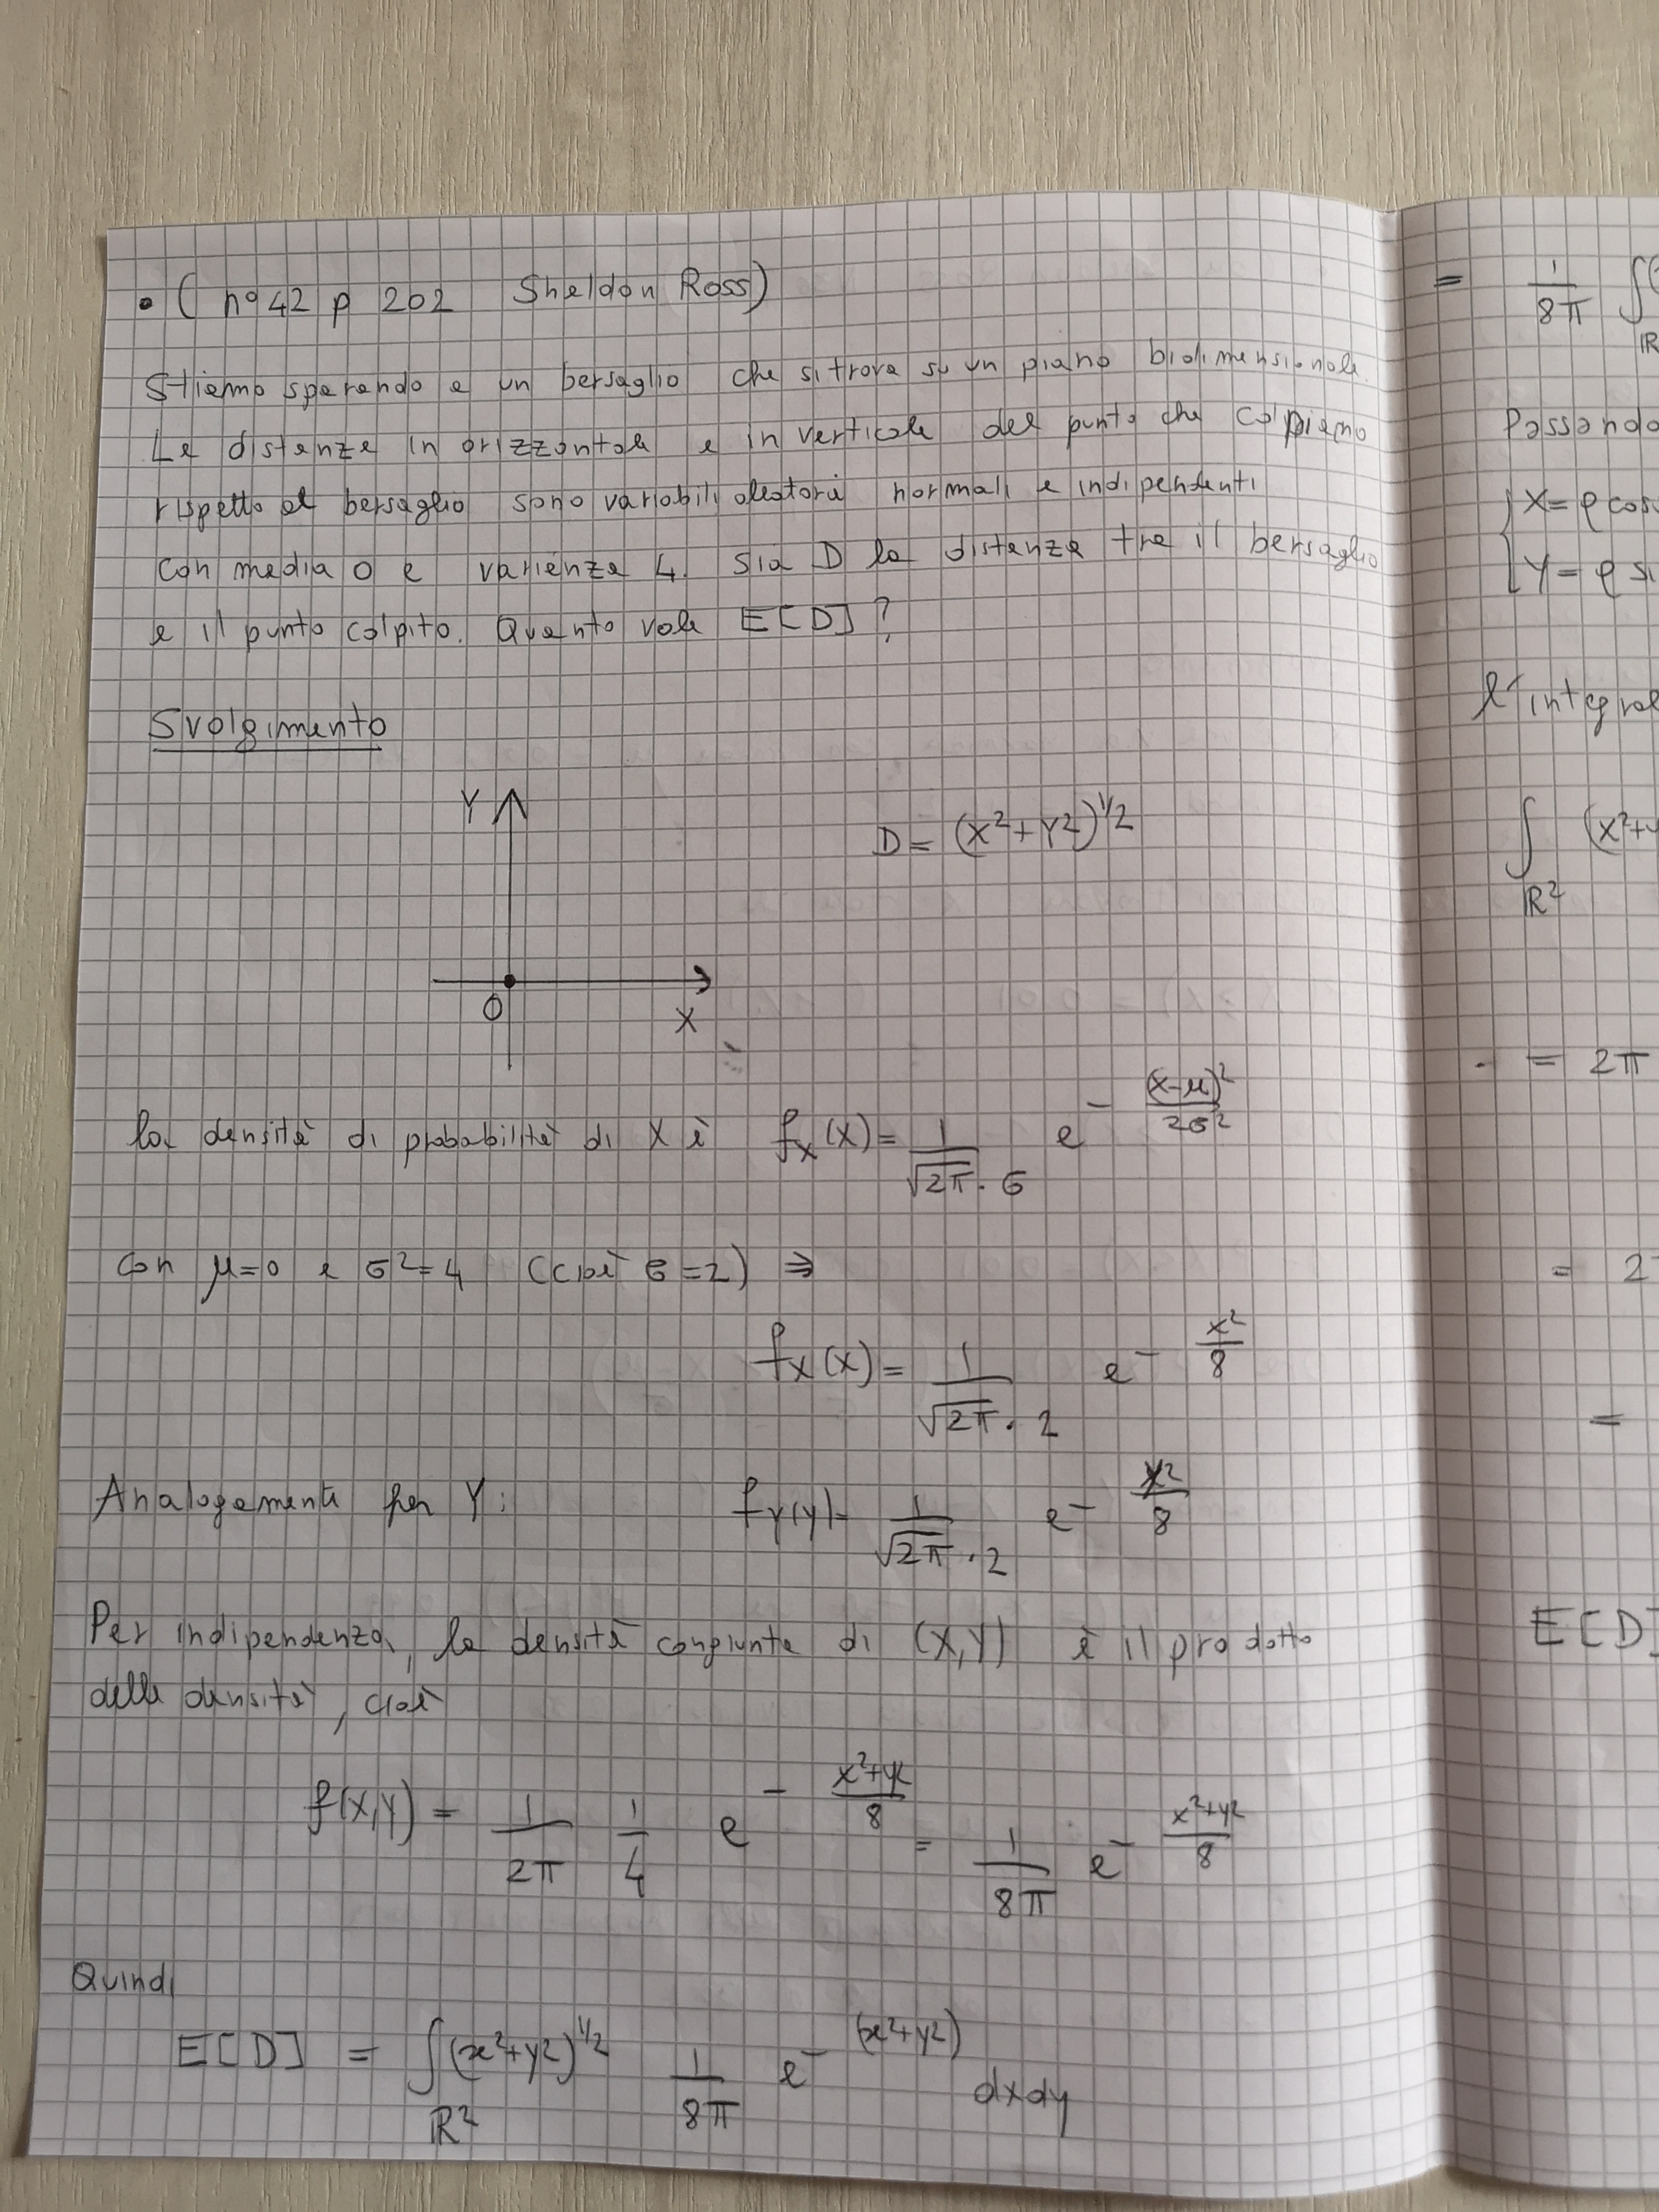 • ( n° 42 p 202 Sheldon Ross)
Stiamo sparando a un bersaglio che si trova su un piano bidimensionale.
Le distanze in orizzontale e in verticale del punto che colpiamo
rispetto al bersaglio sono variabili aleatorie normali e indipendenti
con media 0 e varianza 4. Sia D la distanza tra il bersaglio
e il punto colpito. Quanto vale E[D]?
Svolgimento
Y
D = (X²+Y²)^1/2
O
X
la densità di probabilità di X è f_X(X) = 1/(√2π · σ) e^-(x-μ)²/2σ²
con μ=0 e σ²=4 (cioè σ=2) ⇒
f_X(x) = 1/(√2π · 2) e^-x²/8
Analogamente per Y: f_Y(y) = 1/(√2π · 2) e^-y²/8
Per indipendenza, la densità congiunta di (X,Y) è il prodotto
delle densità, cioè
f(x,y) = 1/2π 1/4 e^-(x²+y²)/8 = 1/8π e^-(x²+y²)/8
Quindi
E[D] = ∫_ℝ² (x²+y²)^1/2 1/8π e^-(x²+y²) dxdy
= 1/8π ∫
ℝ
Passando
X = ρ cos
Y = ρ si
l'integral
∫_ℝ² (x²+y
= 2π
= 2
=
E[D]